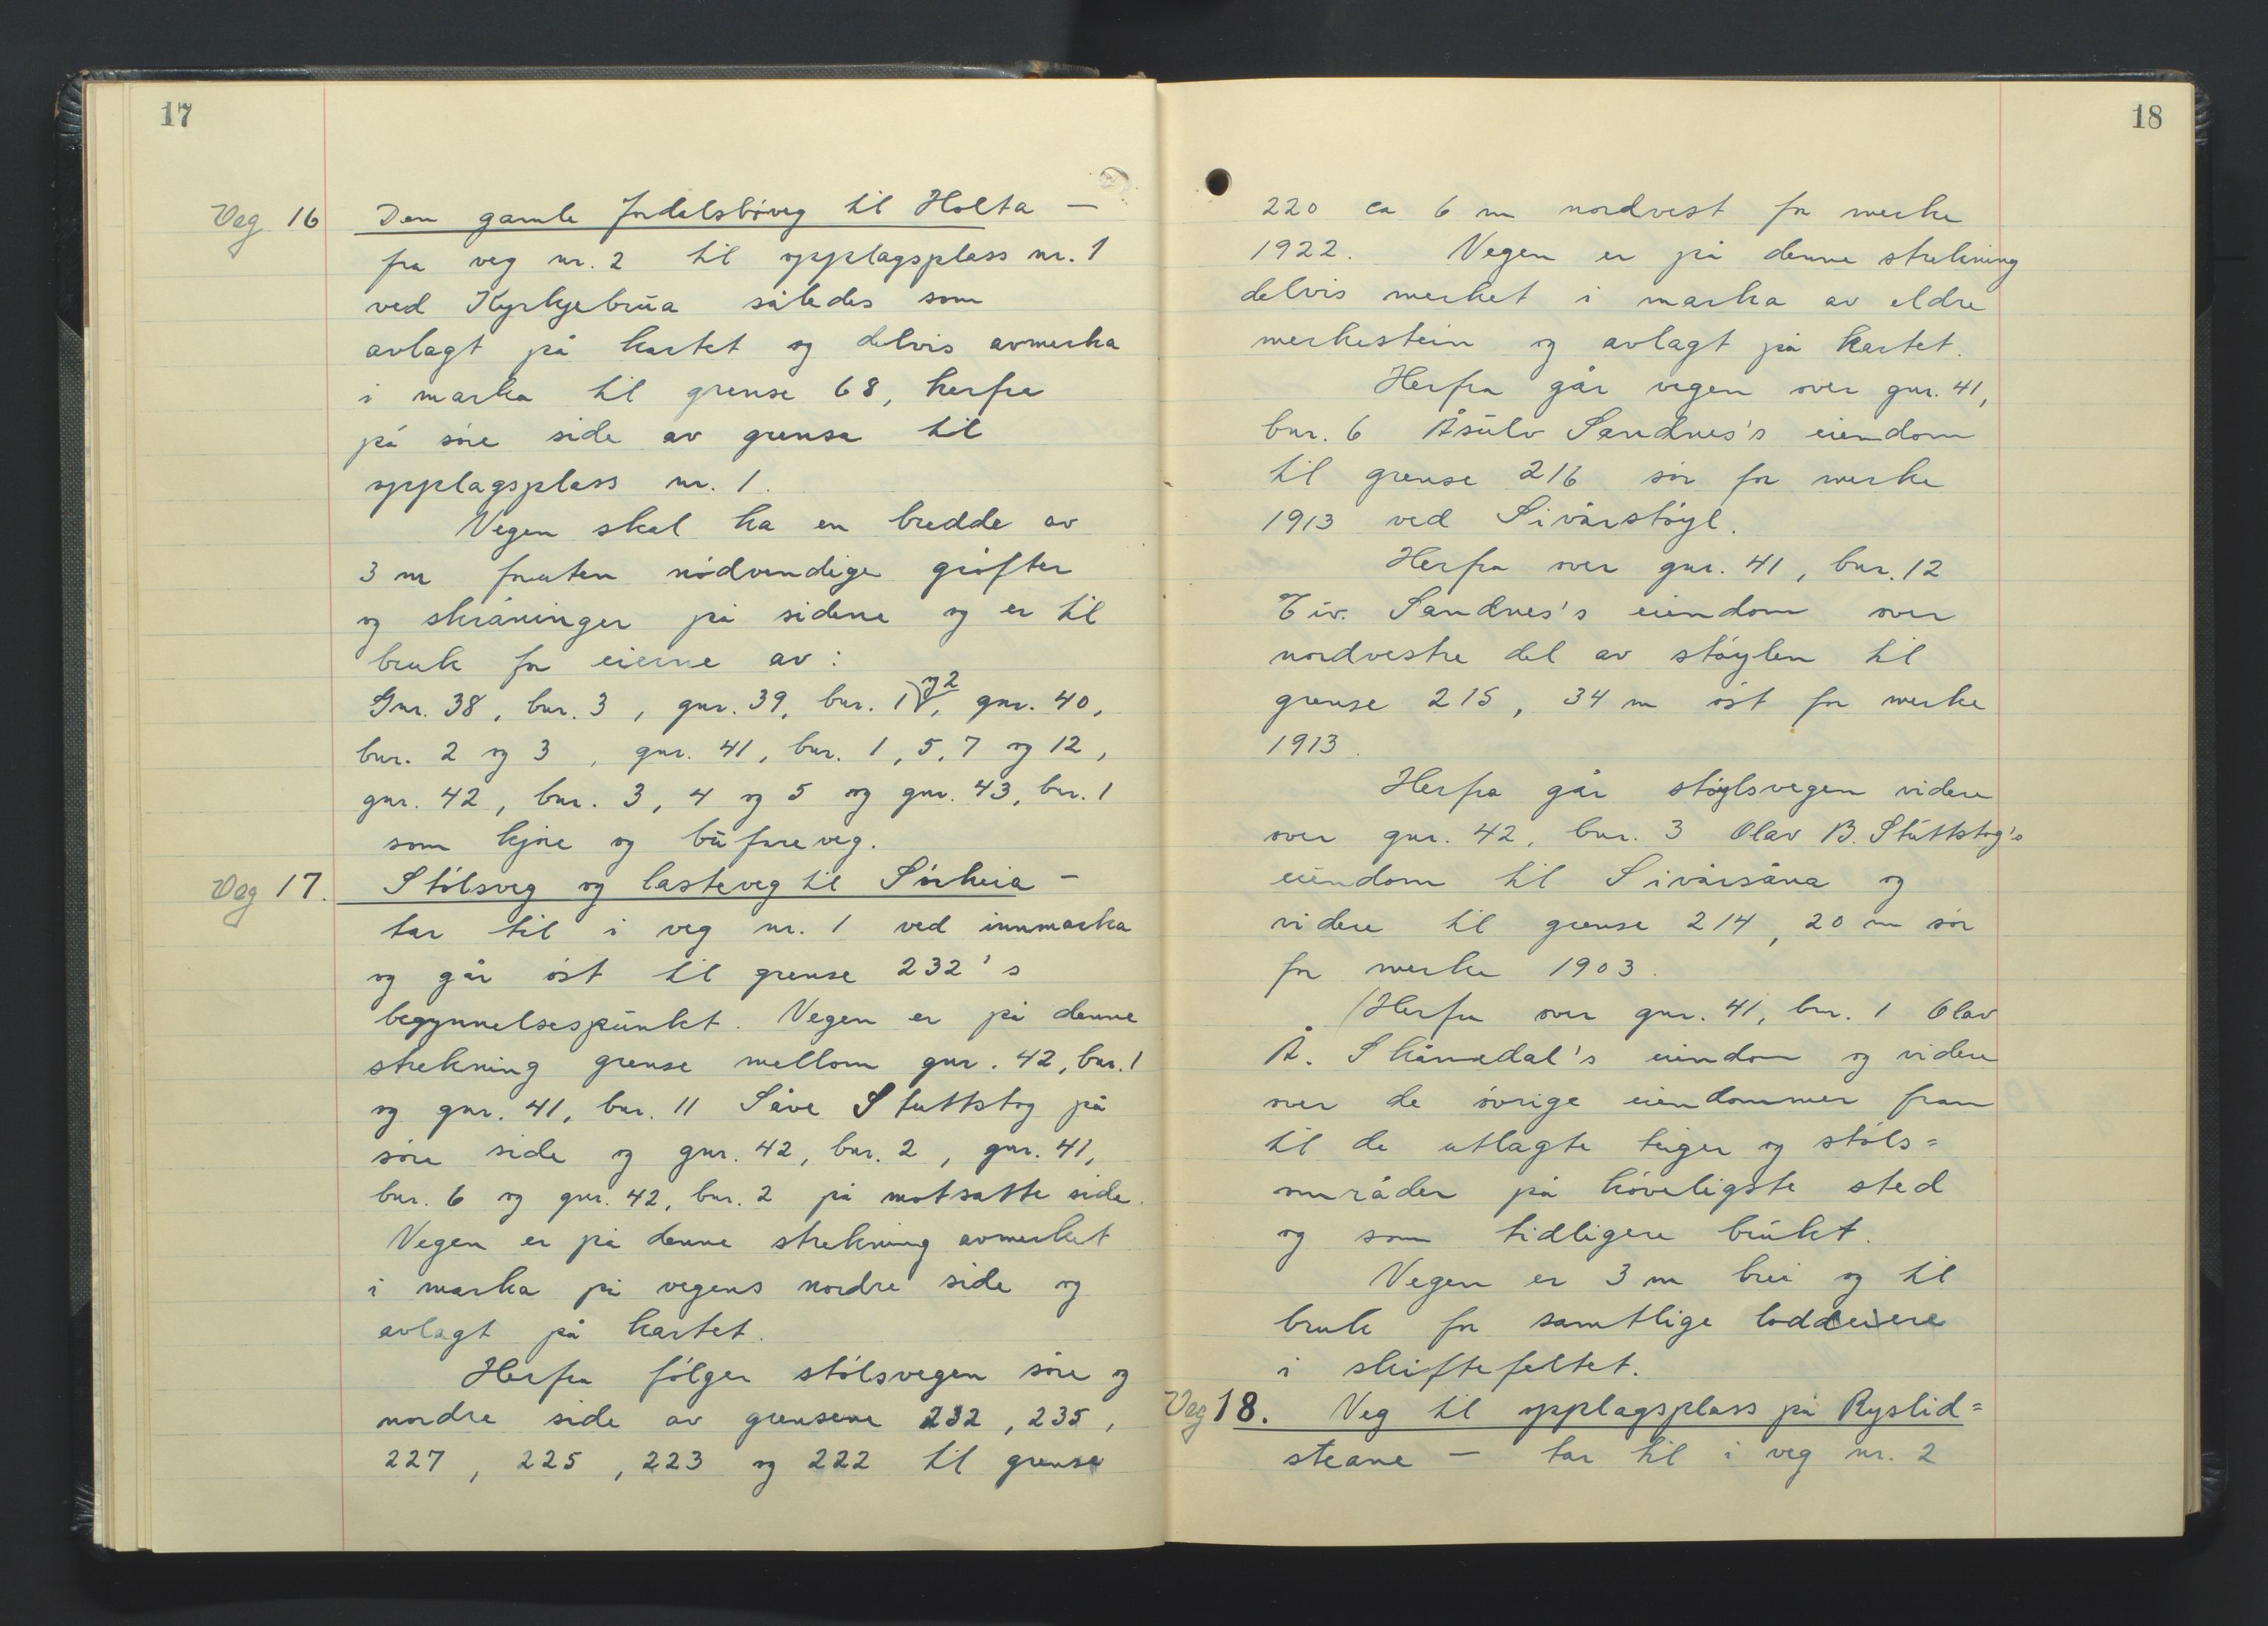 17
Veg 16 Den gamle fordelsbóveg til Holta —
fra veg nr. 2 til opplagsplass nr. 1
ved Kyrkjebrua således som
avlagt på kartet og delvis avmerka
i marka til grense 68, herfra
på söre side av grensa til
opplagsplass nr. 1.
Vegen skal ha en bredde av
3 m foruten nödvendige gröfter
og skråninger på sidene og er til
bruk for eierne av:
Gnr. 38, bnr. 3, gnr. 39, bnr. 1 og 2, gnr. 40,
bnr. 2 og 3, gnr. 41, bnr. 1, 5, 7 og 12,
gnr. 42, bnr. 3, 4 og 5 og gnr. 43, bnr. 1
som kjöre og bufareveg.
Veg 17. Stölsveg og lasteveg til Sörheia —
tar til i veg nr. 1 ved innmarka
og går öst til grense 232's
begynnelsespunkt. Vegen er på denne
strekning grense mellom gnr. 42, bnr. 1
og gnr. 41, bnr. 11 Såve Stuttstog på
söre side og gnr. 42, bnr. 2, gnr. 41,
bnr. 6 og gnr. 42, bnr. 2 på motsatte side.
Vegen er på denne strekning avmerket
i marka på vegens nordre side og
avlagt på kartet.
Herfra fölger stölsvegen söre og
nordre side av grensene 232, 235,
227, 225, 223 og 222 til grense
18
220 ca 6 m nordvest for merke
1922. Vegen er på denne strekning
delvis merket i marka av eldre
merkestein og avlagt på kartet.
Herfra går vegen over gnr. 41,
bnr. 6 Åsulv Sandnes's eiendom
til grense 216 sör for merke
1913 ved Sivarstöyl.
Herfra over gnr. 41, bnr. 12
Eiv. Sandnes's eiendom over
nordvestre del av stöylen til
grense 215, 34 m öst for merke
1913.
Herfra går stöylsvegen videre
over gnr. 42, bnr. 3 Olav B. Stuttstog's
eiendom til Sivarsåna og
videre til grense 214, 20 m sör
for merke 1903.
Herfra over gnr. 41, bnr. 1 Olav
Å. Skåmedal's eiendom og videre
over de övrige eiendommer fram
til de utlagte teiger og stöls=
områder på höveligste sted
og som tidligere brukt.
Vegen er 3 m brei og til
bruk for samtlige loddeiere
i skiftefeltet.
Veg 18. Veg til opplagsplass på Ryslid=
steane — tar til i veg nr. 2